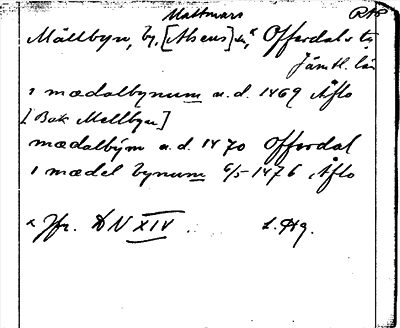 Mattmars RAP
Mällbyn, by, [Alsens] sn, × Offerdals tg
Jämtl. län
i mædalbynum a. d. 1469 Åflo
[Bak Mellbyn]
mædalbÿm a. d. 1470 Offerdal
i mædel bynum 6/5 1476, Åflo
× Jfr. DN XIV. L. Hg.